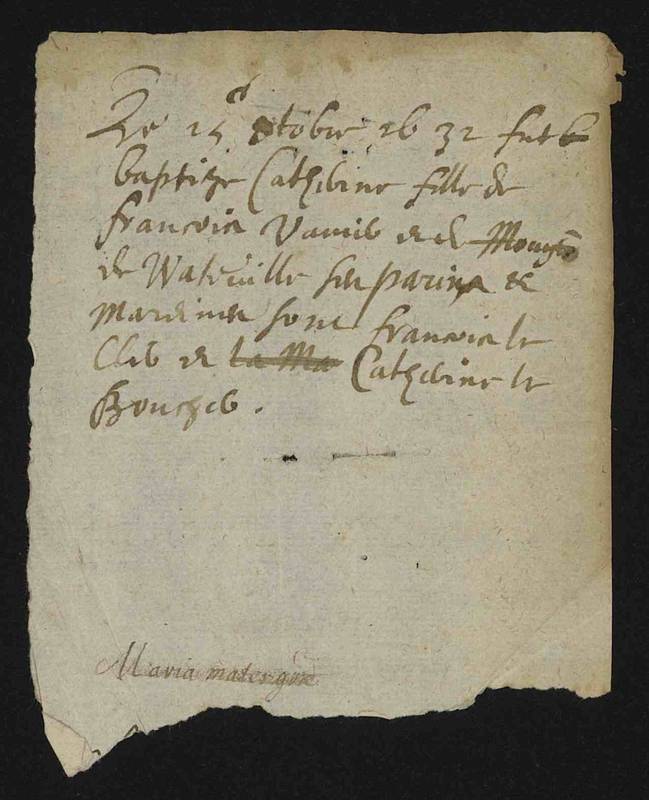 Le 25 octobre 1632 fut
baptize Catherine fille de
francois Danib et de
de Wateville ses parins et
Mareines sont francois le
Clēb et la Ma Catherine le
Boucheb.
Maria mater grae